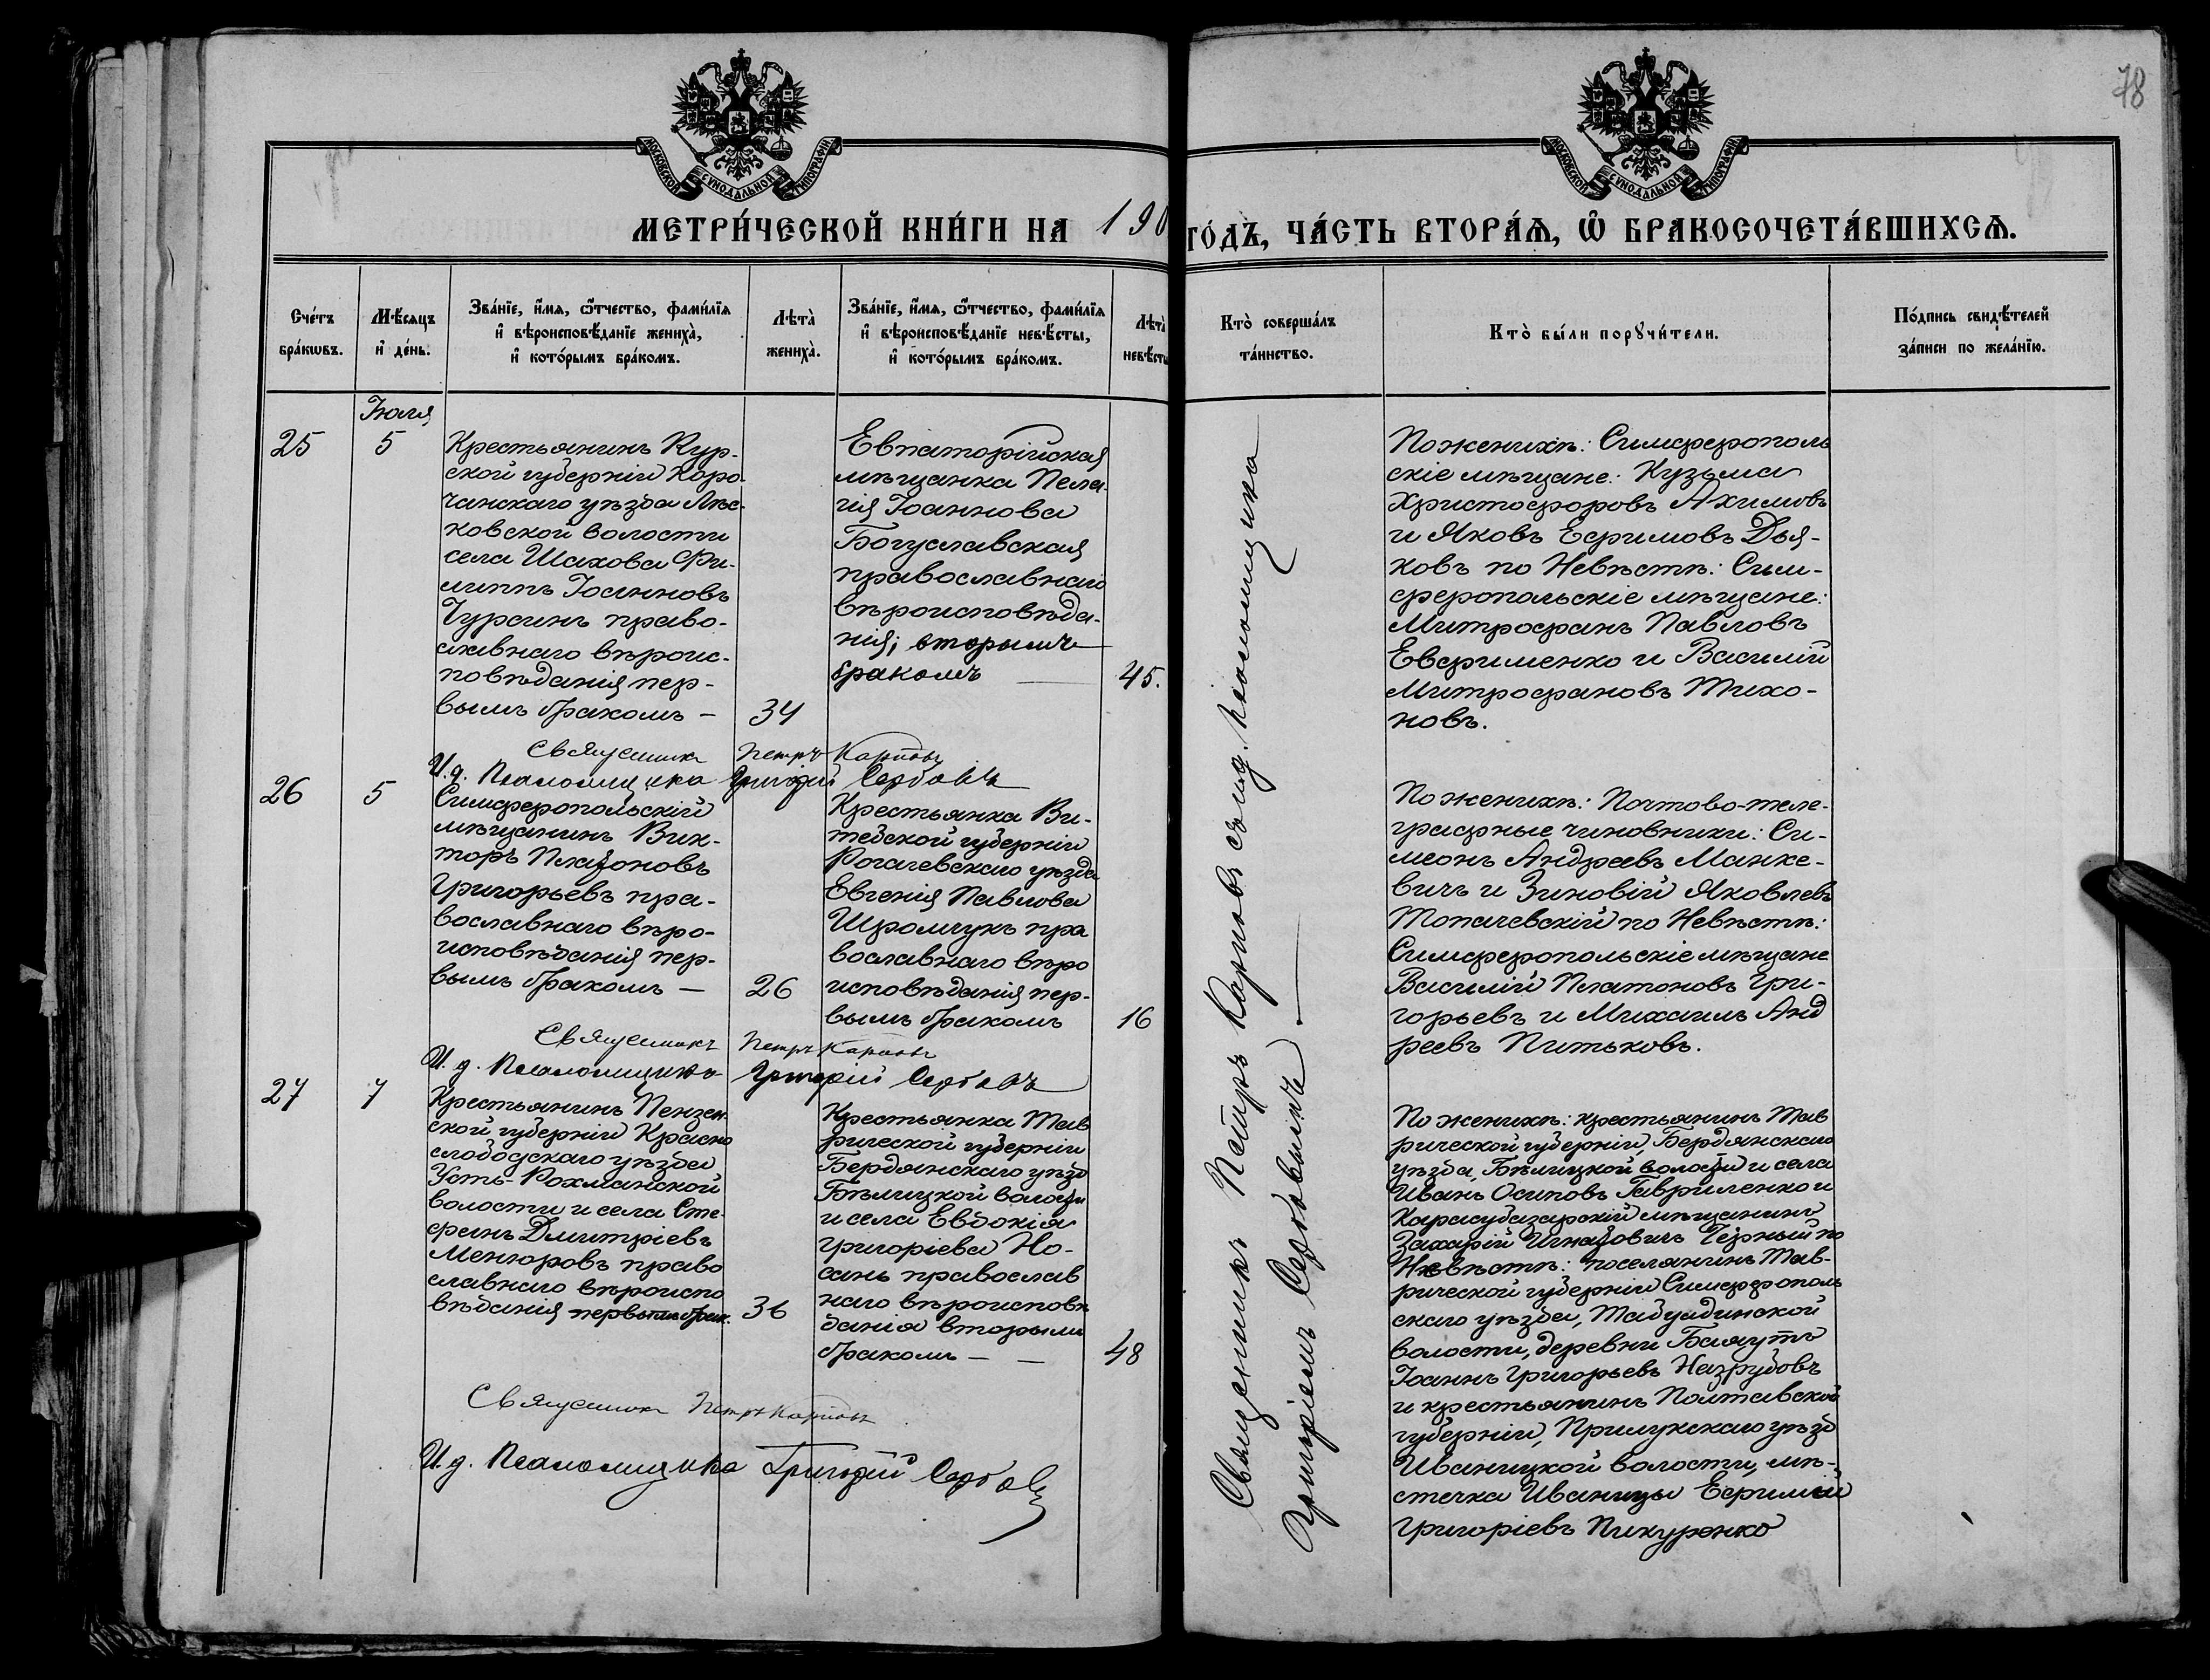 78
МОСКОВСКОЙ СѴНОДАЛЬНОЙ ТИПОГРАФІИ
МОСКОВСКОЙ СѴНОДАЛЬНОЙ ТИПОГРАФІИ
МЕТРИ́ЧЕСКОЙ КНИ́ГИ НА 190
ГО́ДЪ, ЧА́СТЬ ВТОРА́Ѧ, Ѽ БРАКОСОЧЕТА́ВШИХСѦ.
Сче́тъ
бра́кωвъ.
Мѣ́сяцъ
и҆ де́нь.
Зва́нїе, и҆́мѧ, ѻ҆́тчество, фами́лїѧ
и҆ вѣроисповѣ́данїе жениха̀,
и҆ кото́рымъ бра́комъ.
Лѣта̀
жениха̀.
Зва́нїе, и҆́мѧ, ѻ҆́тчество, фами́лїѧ
и҆ вѣроисповѣ́данїе невѣ́сты,
и҆ кото́рымъ бра́комъ.
Лѣта̀
невѣ́сты
Кто̀ соверша́лъ
та́инство.
Кто̀ бы́ли порꙋчи́тели.
По́дпись свидѣ́телей
за́писи по жела́нїю.
Іюля
25
5
Крестьянинъ Кур-
ской губерніи Коро-
чанскаго уѣзда Лѣс-
ковской волости
села Шахова Фи-
липпъ Іоанновъ
Чурсинъ право-
славнаго вѣроис-
повѣданія пер-
вымъ бракомъ —
34
Евпаторійская
мѣщанка Пела-
гія Іоаннова
Богуславская
православнаго
вѣроисповѣда-
нія; вторымъ
бракомъ —
45.
Священникъ Петръ Карповъ съ и.д. псаломщика
Григоріемъ Сербовымъ. —
По женихѣ: Симферополь
скіе мѣщане: Кузьма
Христофоровъ Ахимовъ
и Яковъ Ефимовъ Дья-
ковъ по Невѣстѣ: Сим-
феропольскіе мѣщане:
Митрофанъ Павловъ
Евфименко и Василій
Митрофановъ Тихо-
новъ.
Священникъ Петръ Карповъ
И.д. Псаломщика Григорій Сербовъ
26
5
Симферопольскій
мѣщанинъ Вик-
торъ Платоновъ
Григорьевъ пра-
вославнаго вѣро-
исповѣданія пер-
вымъ бракомъ —
26
Крестьянка Ви-
тебской губерніи
Рогачевскаго уѣзда
Евгенія Павлова
Шромчукъ пра
вославнаго вѣро
исповѣданія пер-
вымъ бракомъ
16
По женихѣ: Почтово-теле-
графные чиновники: Си-
меонъ Андреевъ Манке-
вичъ и Зиновій Яковлевъ
Топачевскій по Невѣстѣ:
Симферопольскіе мѣщане
Василій Платоновъ Гри-
горьевъ и Михаилъ Анд
реевъ Питьковъ.
Священникъ Петръ Карповъ
И.д. Псаломщика Григорій Сербовъ
27
7
Крестьянинъ Пензен
ской губерніи Красно
слободскаго уѣзда
Усть-Рохманской
волости и села Сте
фанъ Дмитріевъ
Менюровъ право
славнаго вѣроиспо
вѣданія первымъ брак.
36
Крестьянка Тав
рической губерніи
Бердянскаго уѣзд
Бѣлицкой волости
и села Евдокія
Григоріева Но-
сань православ
наго вѣроисповѣ
данія вторымъ
бракомъ — —
48
По женихѣ: крестьянинъ Тав
рической губерніи, Бердянскаго
уѣзда, Бѣлицкой волости и села
Иванъ Осиповъ Гавриленко и
Карасубазарскій мѣщанинъ
Захарій Игнатовичъ Черный по
Невѣстѣ: поселянинъ Тав-
рической губерніи Симферополь
скаго уѣзда, Табулдинской
волости, деревни Баяутъ
Іоаннъ Григорьевъ Назрубовъ
и крестьянинъ Полтавской
губерніи, Прилукскаго уѣзд
Иваницкой волости, мѣ-
стечка Иваницы Ефимій
Григоріевъ Пикуренко
Священникъ Петръ Карповъ
И.д. Псаломщика Григорій Сербовъ